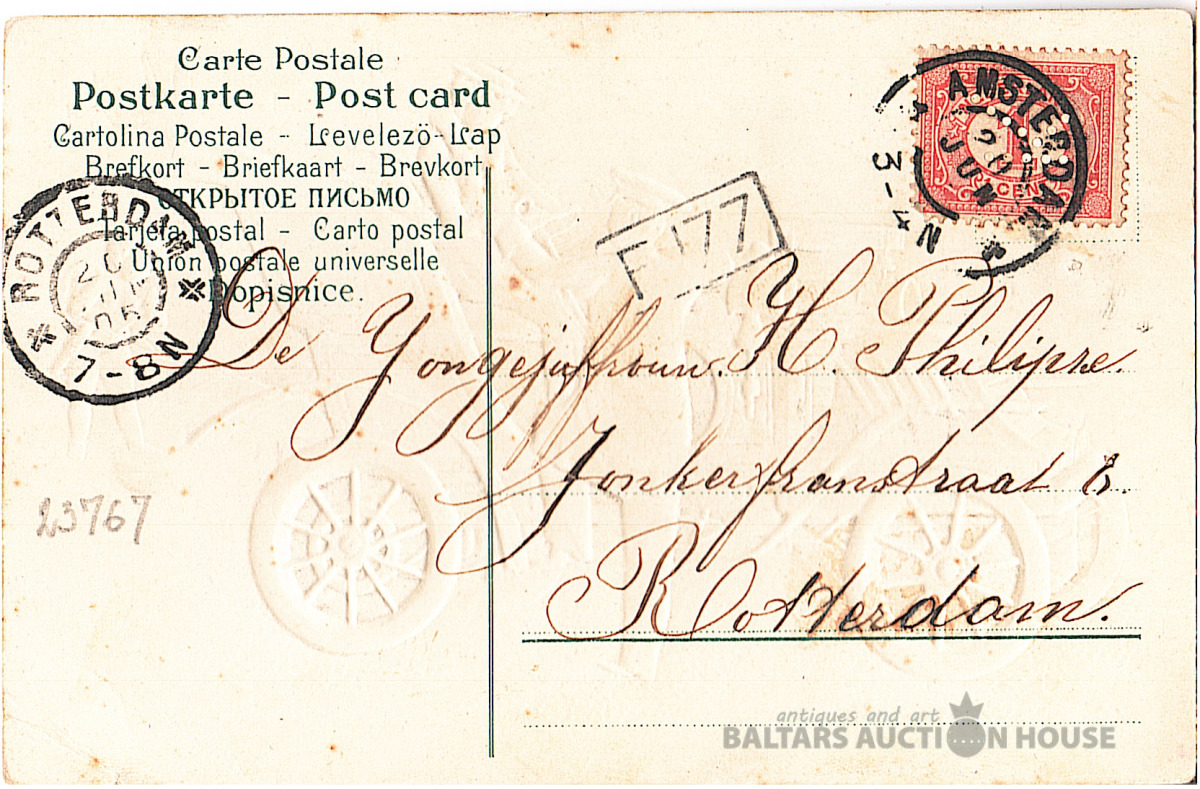 Carte Postale
Postkarte - Post card
Cartolina Postale - Levelezö-Lap
Brefkort - Briefkaart - Brevkort
ОТКРЫТОЕ ПИСЬМО
Tarjeta postal - Carto postal
Union postale universelle
Dopisnice.
ROTTERDAM
20 JUN
05
7-8N
AMSTERDAM
20 JUN
3-4 N
CENT
F 177
De Jongejuffrouw. H. Philipse.
Jonkerfranstraat 8.
Rotterdam.
23767
antiques and art
BALTARS AUCTION HOUSE